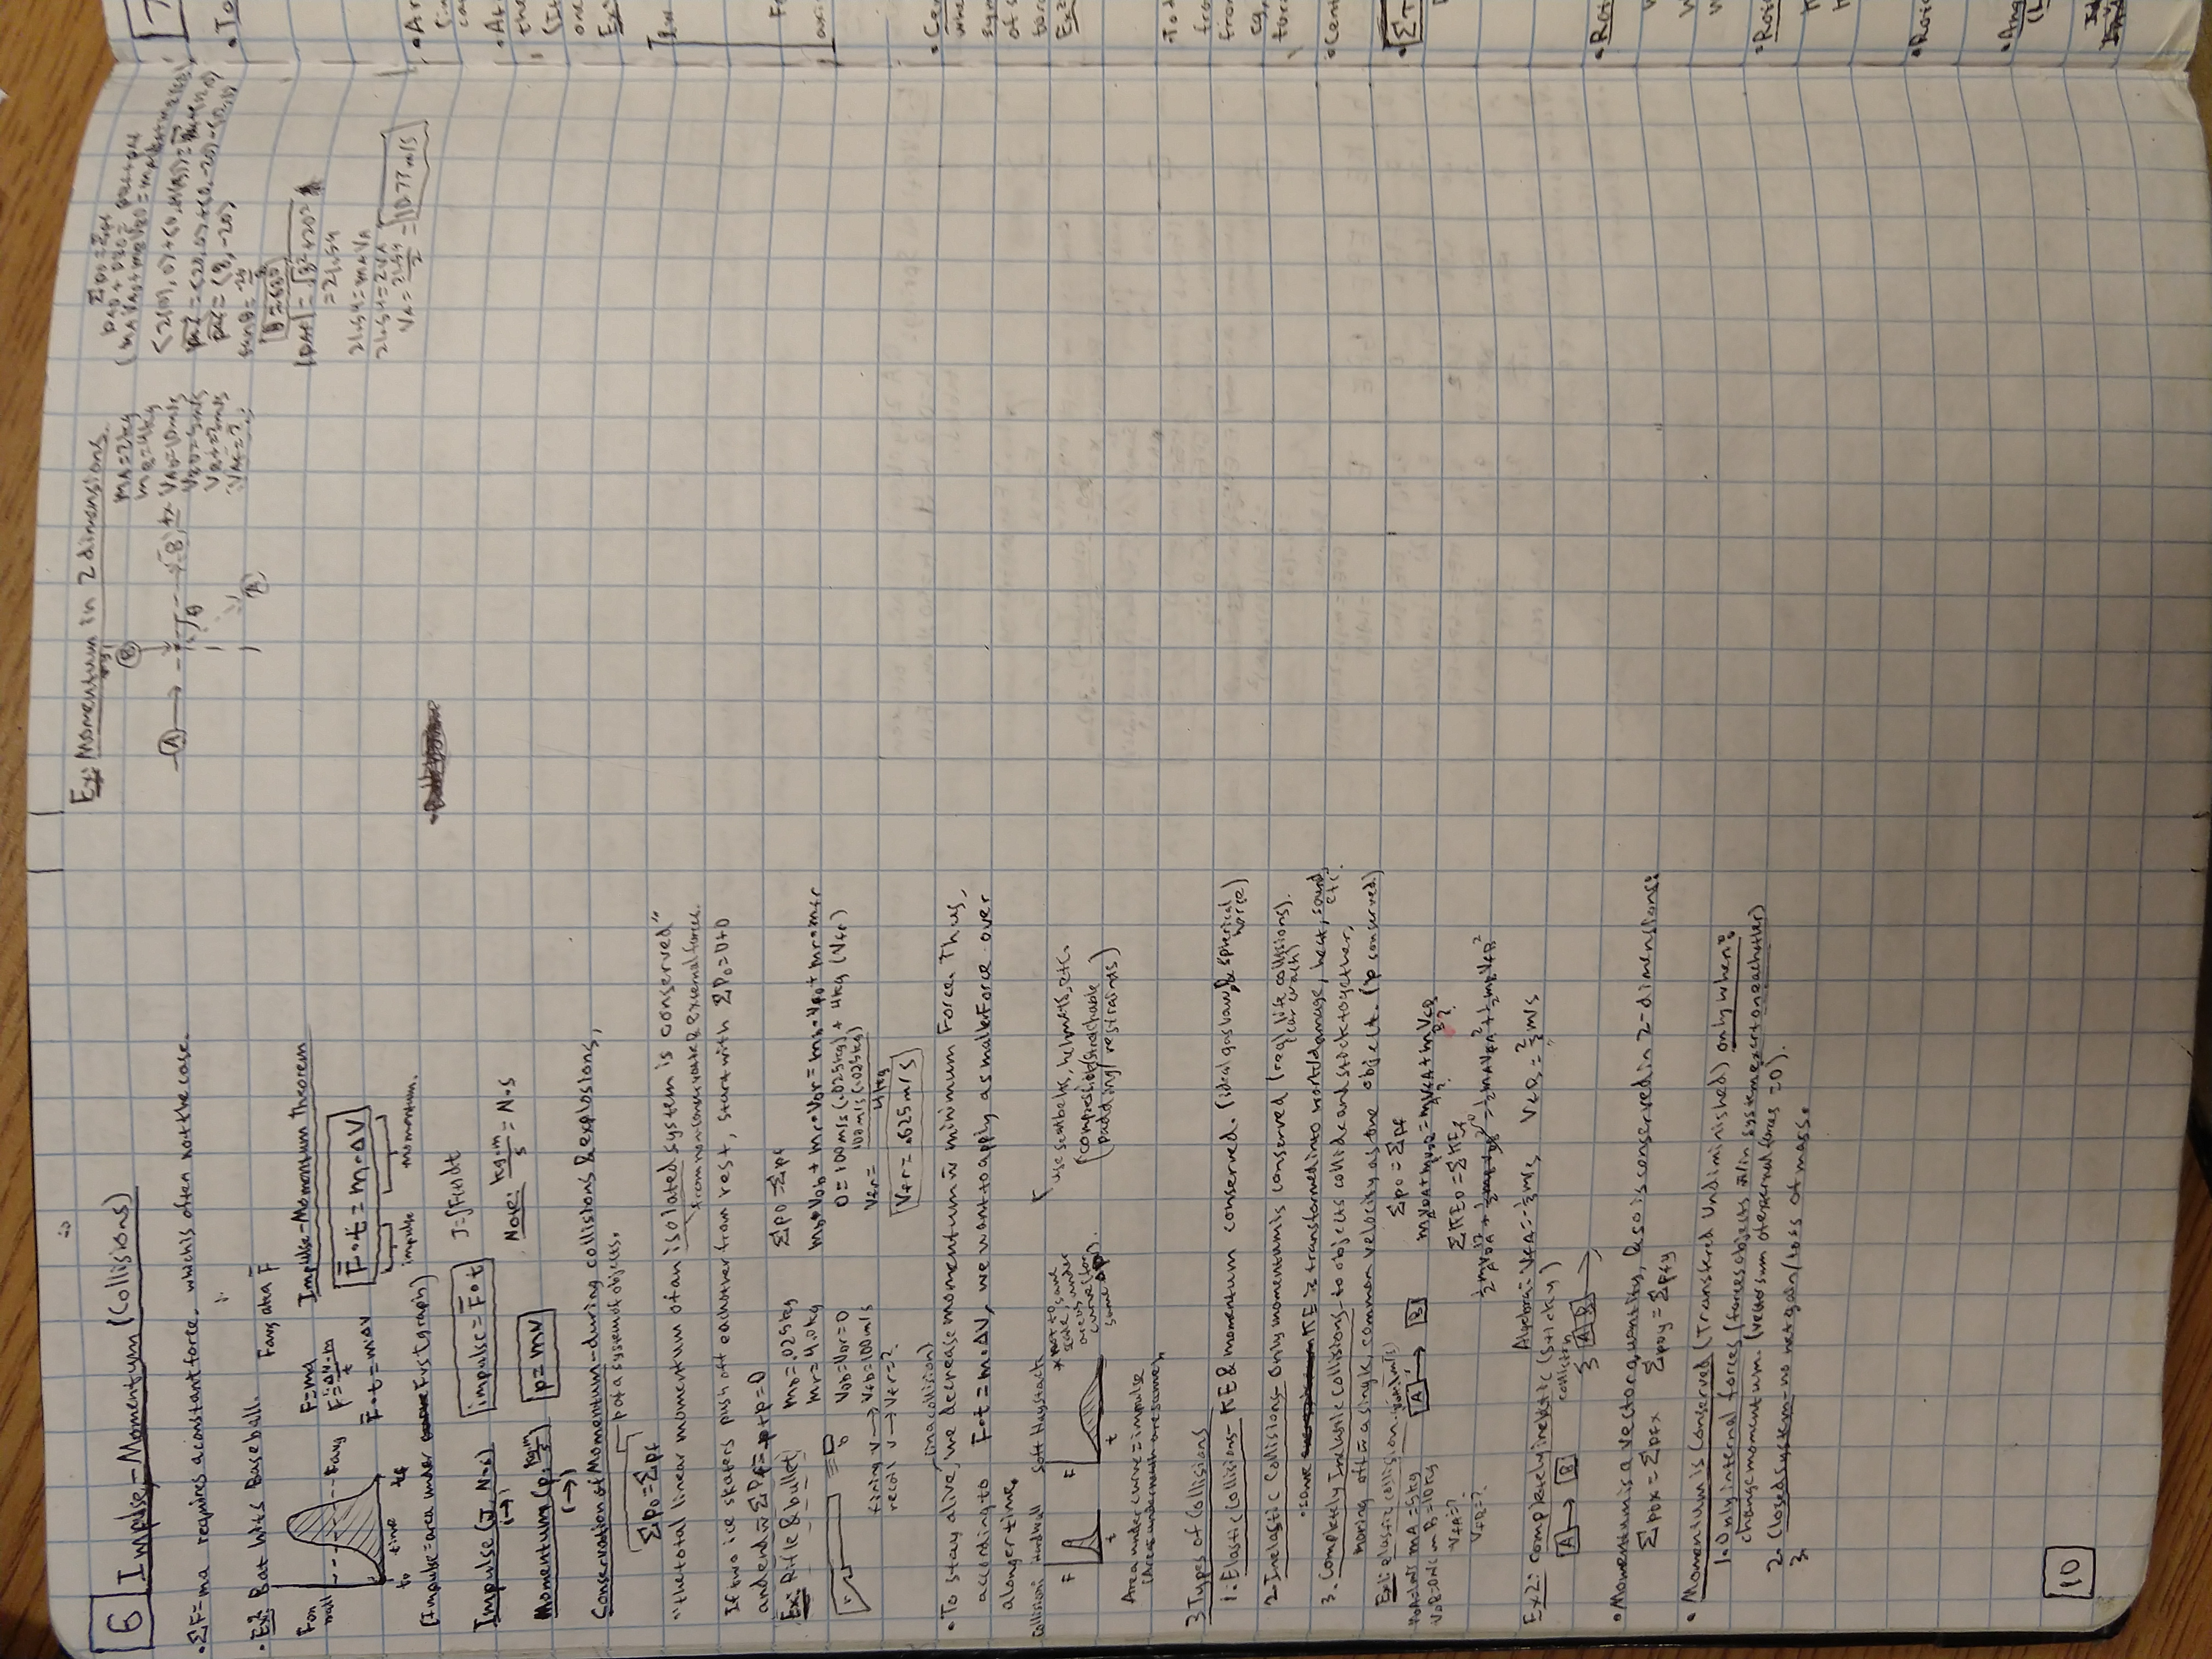 6 Impulse-Momentum (Collisions)
• ΣF=ma requires a constant force. which is often not the case.
• Ex: Bat hits Baseball.
Favg aka F̄
F on ball
Favg
t₀ time tf
F=ma
F=Δv·m/t
F̄·t=m·Δv
Impulse-Momentum Theorem
F̄·t = m·ΔV
impulse momentum.
(Impulse=area under F vs t graph)
Impulse (J, N·s) impulse = F̄·t J=∫F(t)dt
(→)
Note: kg·m/s = N·s
Momentum (p, kg·m/s) p=mv
(→)
Conservation of Momentum-during collisions & explosions,
p of a system of objects.
Σp₀=Σpf
"the total linear momentum of an isolated system is conserved"
from nonconservative & external forces.
If two ice skaters push off eachother from rest, start with ΣP₀=0+0
and end w̄ ΣPf=-p+p=0
Ex: Rifle & bullet
r
b
mb=.025kg
mr=4.0kg
V0b=V0r=0
firing v → Vfb=100m/s
recoil v → Vfr=?
Σp0=Σpf
mb·V0b + mr·V0r = mb·Vfb + mr·mfr
0=100m/s(.025kg) + 4kg (Vfr)
Vfr= 100m/s(.025kg)/4kg
Vfr= .625m/s
(in a collision)
• To stay alive, we decrease momentum w̄ minimum Force. Thus,
according to F·t=m·ΔV, we want to apply a smaller Force over
a longer time.
Collision: Hardwall Soft Haystack
F t F t
* not to scale, same areas under curve (for same Δp).
use seatbelts, helmets, etc.
(compression/stretchable
padding/restraints)
Area under curve = impulse
(Areas underneath are same)
3 Types of Collisions
1. Elastic Collisions- KE & momentum conserved. (ideal gas law, & spherical horse)
2. Inelastic Collisions- Only momentum is conserved (real life collisions).
(car crash)
• some KE is transformed into work/damage, heat, sound, etc.
3. Completely Inelastic Collisions- to objects collide and stick together,
moving off w̄ a single, common velocity as one object. (p conserved)
Ex1: elastic collision.
V0A=1m/s mA=5kg
V0B=0m/s mB=10kg
VfA=?
VfB=?
A → B
Σp0=Σpf
mV0A+mV0B=mVfA+mVfB
? ?
ΣKE0=ΣKEf
½mAV0A²+½mBV0B²=½mAVfA²+½mBVfB²
Algebra: VfA=-⅓m/s VfB=⅔m/s
Ex2: completely inelastic (sticky)
A → B
collision
A B →
• Momentum is a vector quantity, & so is conserved in 2-dimensions:
Σp0x=Σpfx Σp0y=Σpfy
• Momentum is Conserved (Transfered Undiminished) only when:
1. Only internal forces (forces objects w/in system exert on eachother)
change momentum. (vector sum of external forces =0).
2. Closed system- no net gain/loss of mass.
3.
10
Ex: Momentum in 2 dimensions.
A
B
θ
B
A
mA=2kg
mB=4kg
VA0=10m/s
VB0=5m/s
VBf=3m/s
VAf=?
Σp0=Σpf
pAf=(8,-20)
θ=68°
|pAf|=√8²+20²
=21.54
21.54=mAVA
21.54=2VA
VA=21.54/2=10.77m/s
7